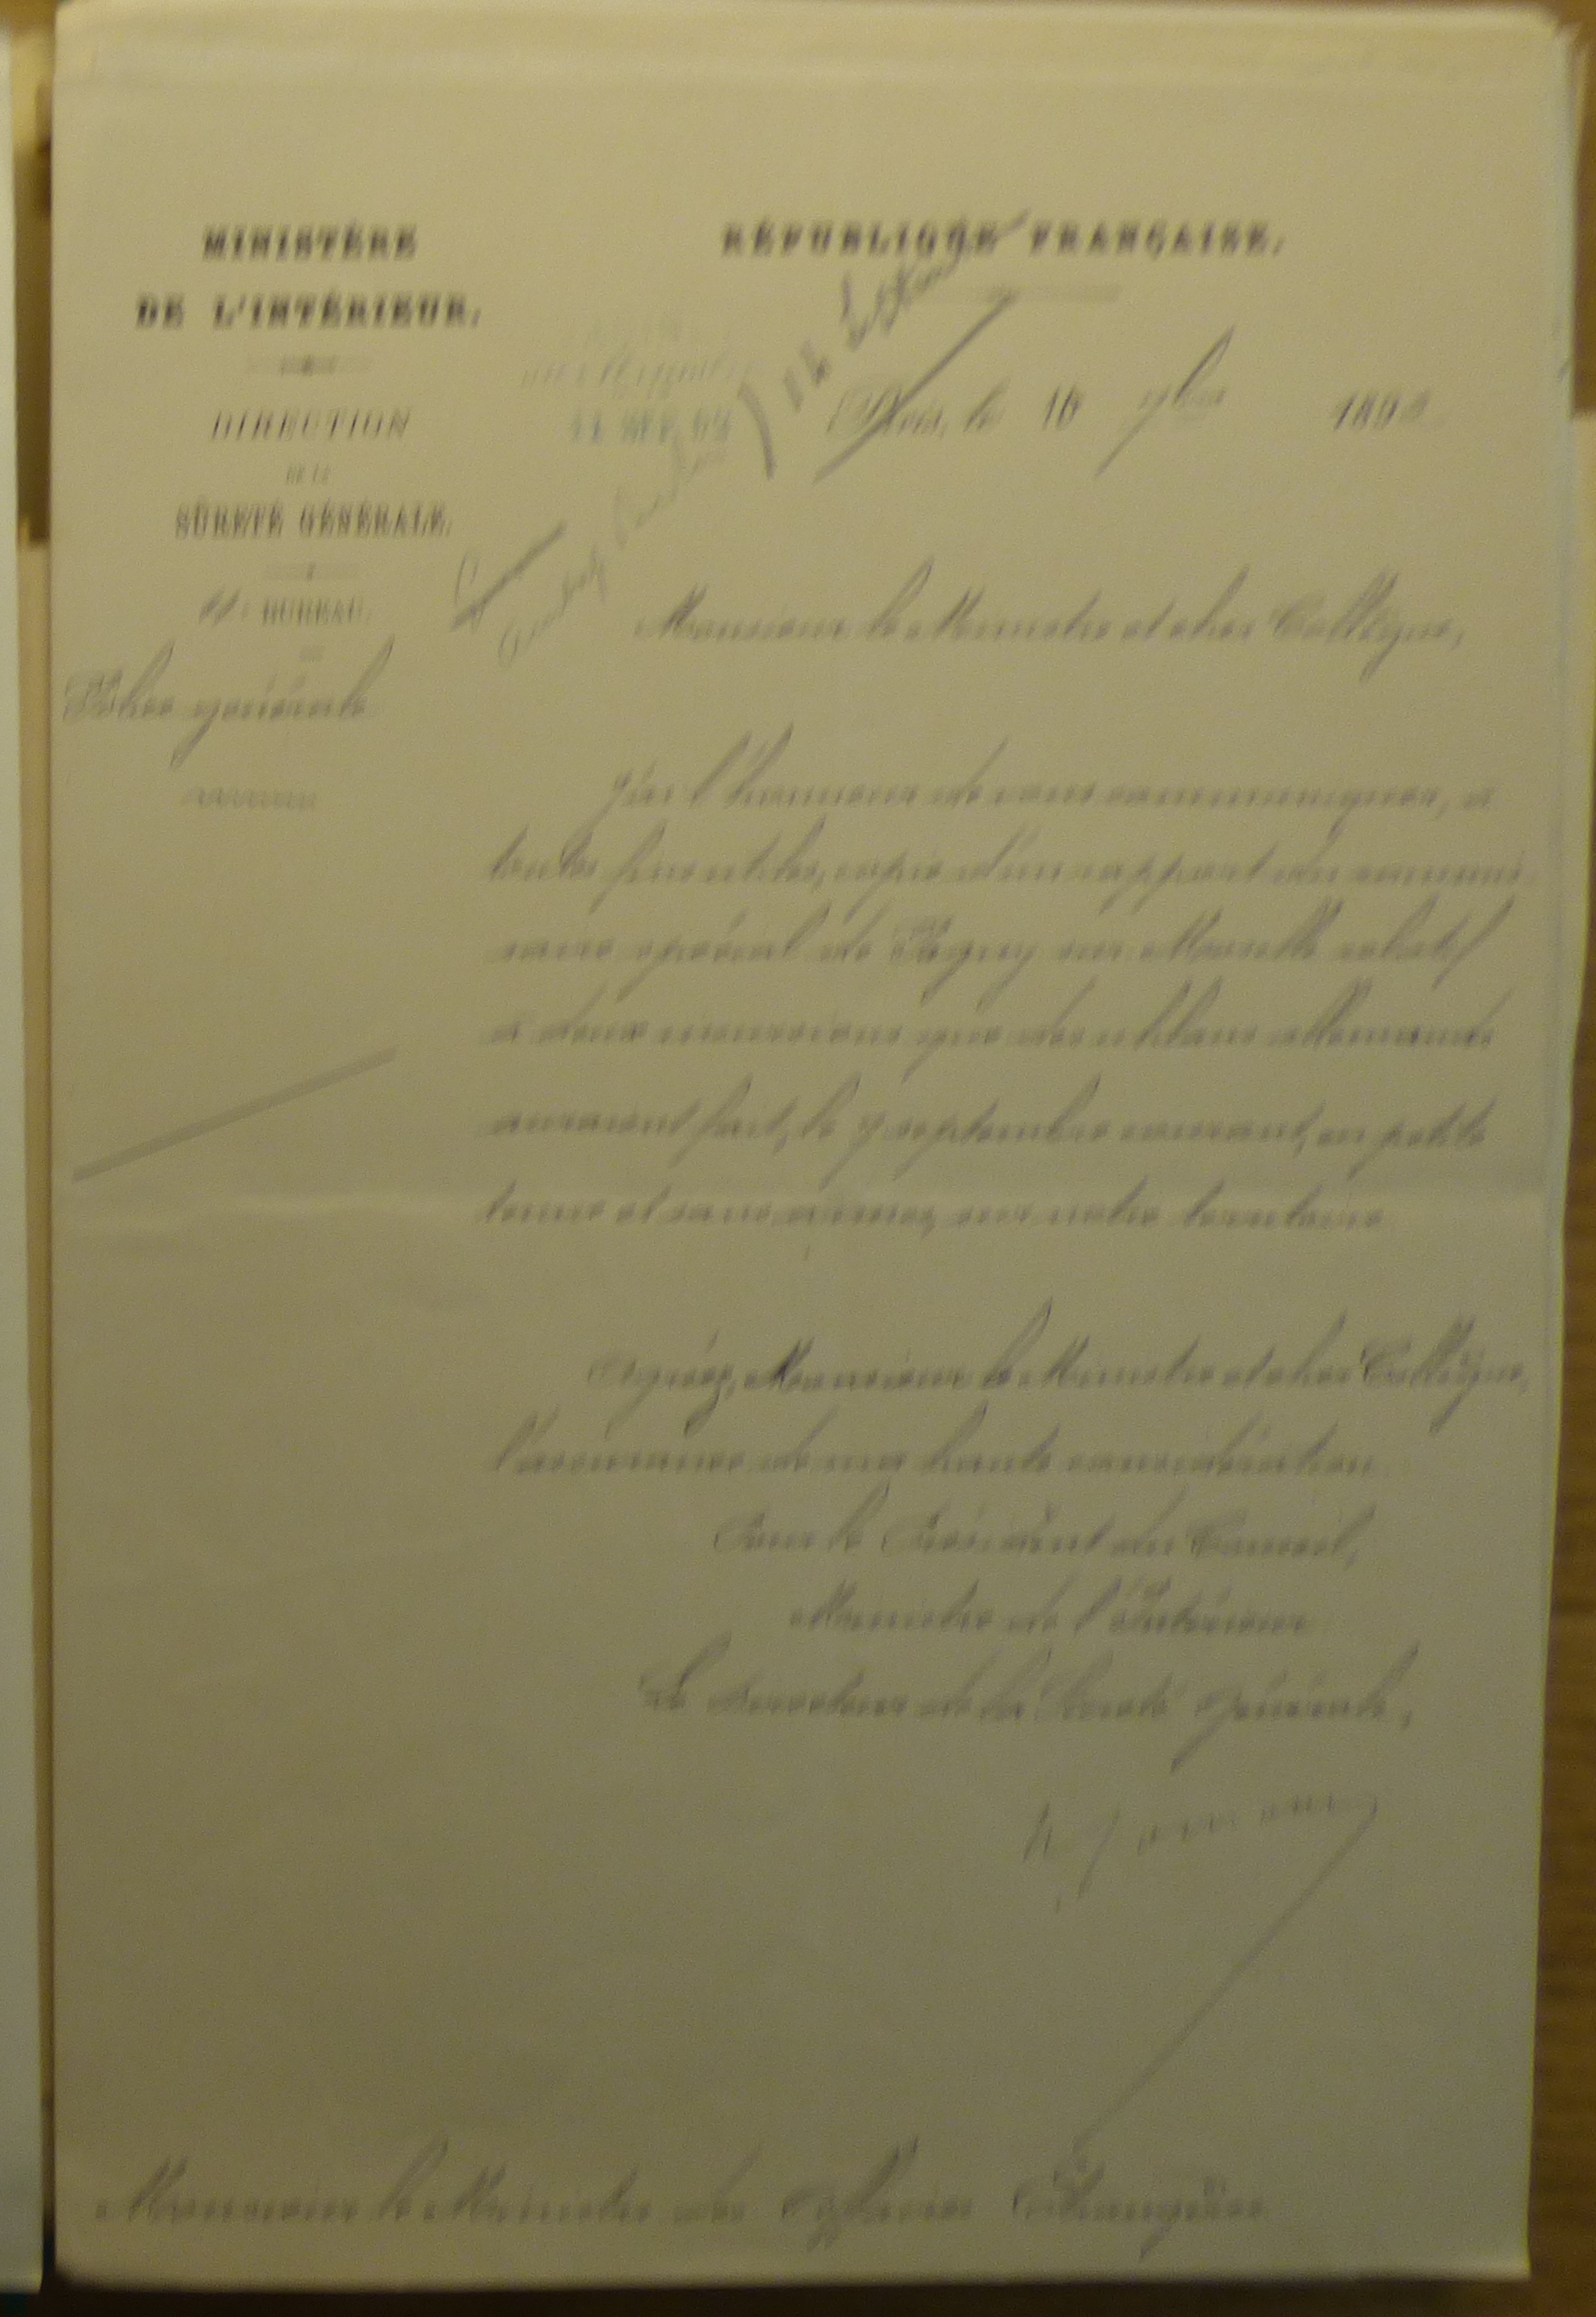 MINISTÈRE
DE L'INTÉRIEUR.
DIRECTION
DE LA
SÛRETÉ GÉNÉRALE.
BUREAU.
Police générale
RÉPUBLIQUE FRANÇAISE.
Paris, le 10 7bre 189
Monsieur le Ministre et cher Collègue,
J'ai l'honneur de vous communiquer, à
toutes fins utiles, copie d'un rapport du commis-
saire spécial de Pagny sur Moselle relatif
à deux incursions que des uhlans allemands
auraient fait, le 7 septembre courant, en petite
tenue et sans armes, sur notre territoire
Agréez, Monsieur le Ministre et cher Collègue,
l'assurance de ma haute considération
Pour le Président du Conseil,
Ministre de l'Intérieur
Le Directeur de la Sûreté Générale,
Monsieur le Ministre des Affaires Étrangères